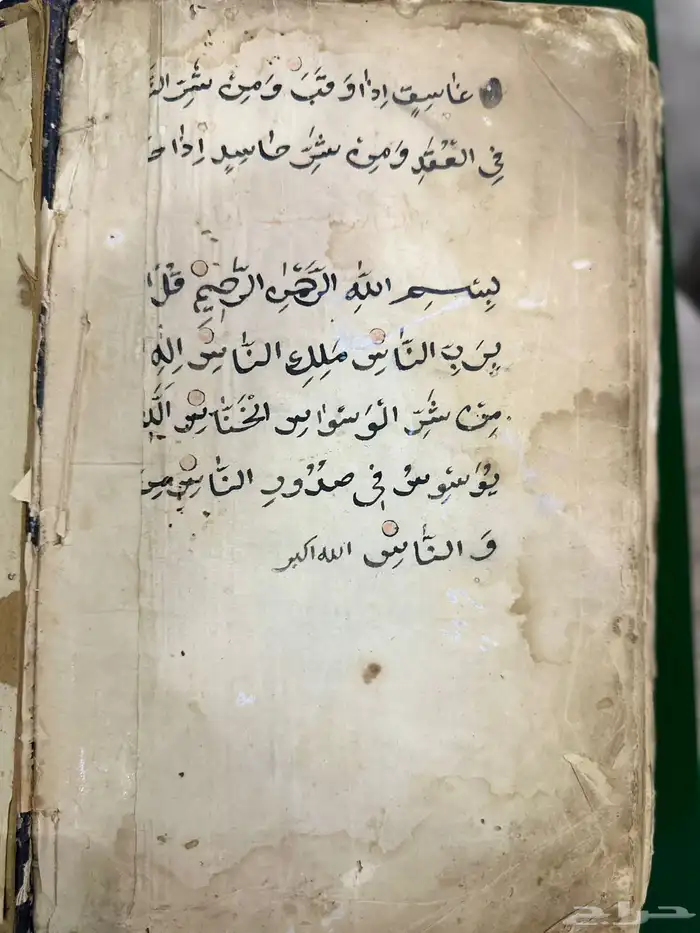 غَاسِقٍ اِذَا وَقَبَ وَمِنْ شَرِّ
فِي الْعُقَدِ وَمِنْ شَرِّ حَاسِدٍ اِذَا
بِسْمِ اللّٰهِ الرَّحْمٰنِ الرَّحِيمِ قُلْ
بِرَبِّ النَّاسِ مَلِكِ النَّاسِ اِلٰهِ
مِنْ شَرِّ الْوَسْوَاسِ الْخَنَّاسِ
يُوَسْوِسُ فِي صُدُورِ النَّاسِ مِنَ
وَ النَّاسِ الله اكبر
حراج